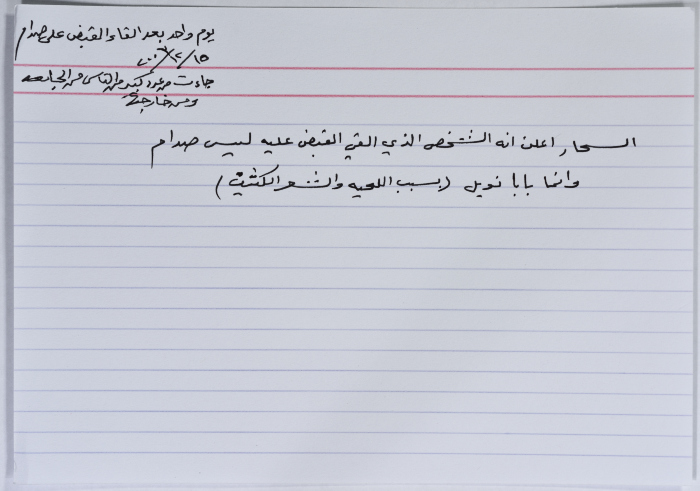 يوم واحد بعد القاء القبض على صدام
١٥/١٢/٢٠٠٣
جاءت من عدد كبير من الناس من الجامعه
ومن خارجها
السحار اعلن انه الشخص الذي القي القبض عليه ليس صدام
وانما بابا نويل (بسبب اللحيه والشعر الكثيف)